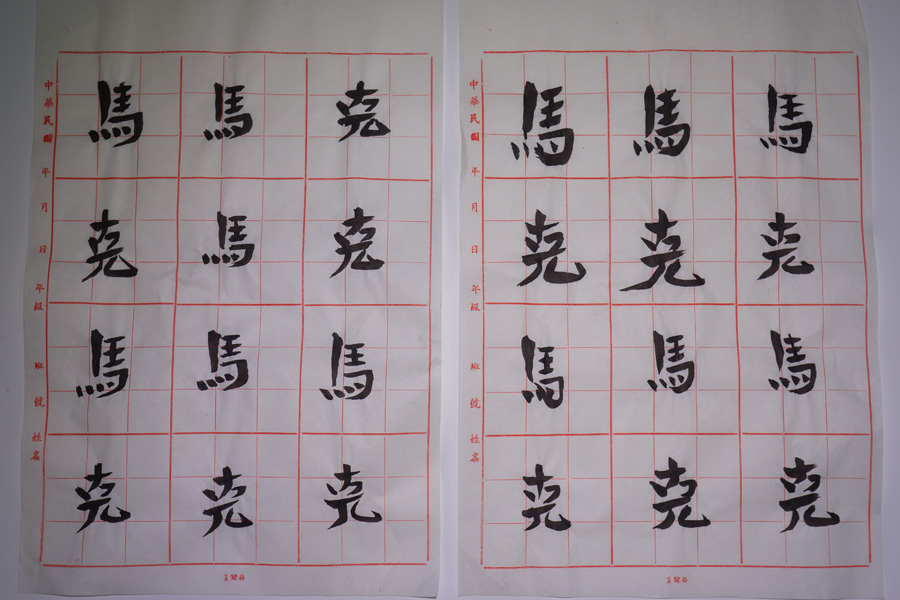 馬克馬克
馬克馬克
馬克馬克
中華民國 年 月 日 年級 班 號 姓名
克克馬克
馬馬馬克
馬克馬克
中華民國 年 月 日 年級 班 號 姓名